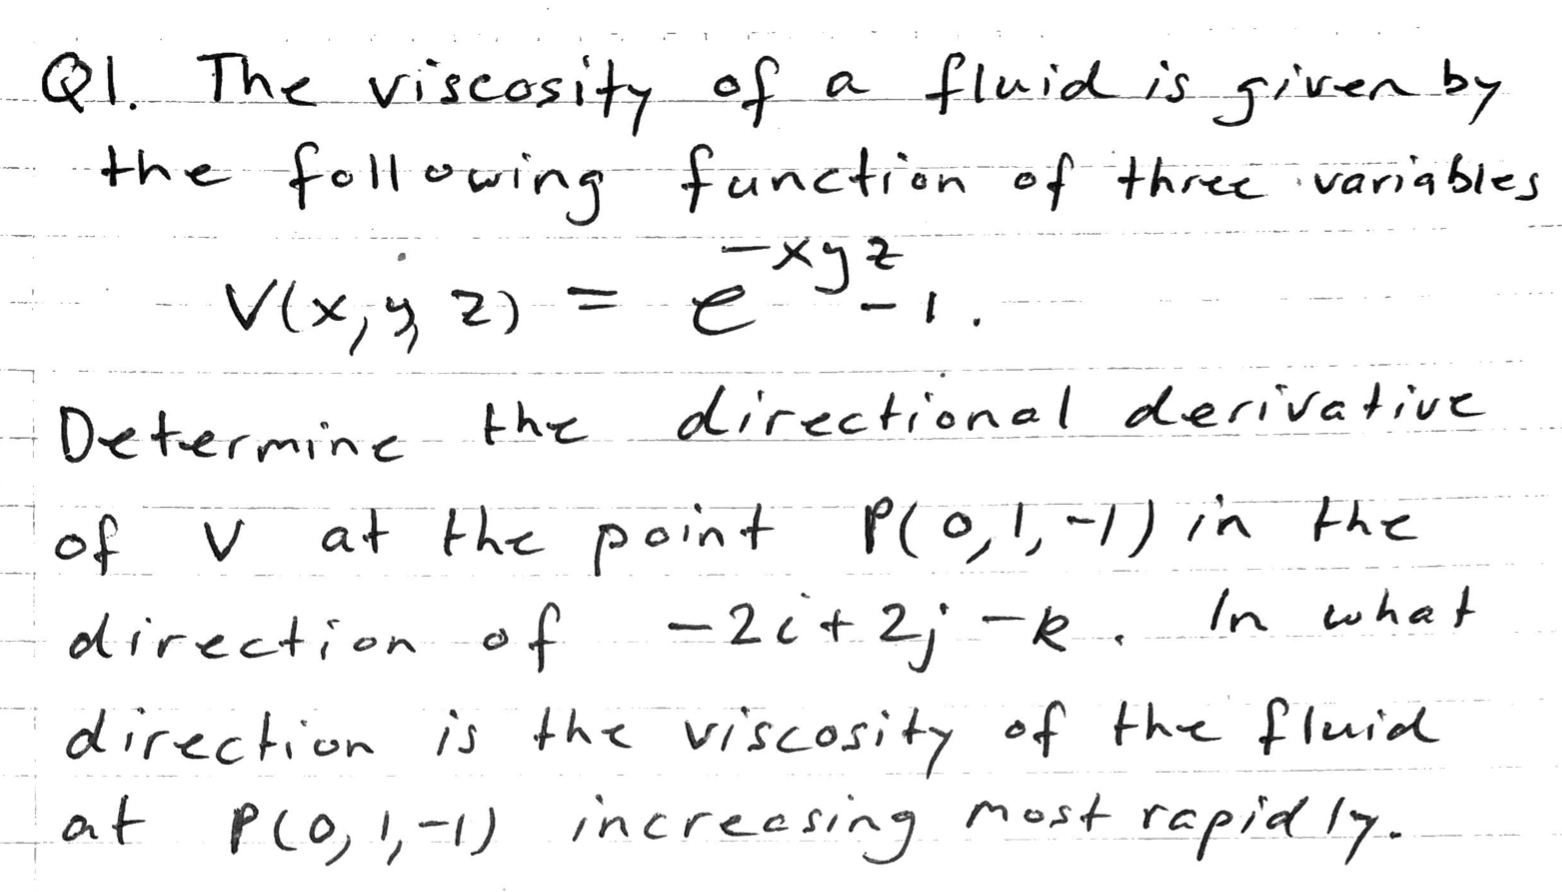 Q1. The viscosity of a fluid is given by
the following function of three variables
V(x, y, z) = e^{-xyz} - 1.
Determine the directional derivative
of V at the point P(0, 1, -1) in the
direction of -2i + 2j - k. In what
direction is the viscosity of the fluid
at P(0, 1, -1) increasing most rapidly.